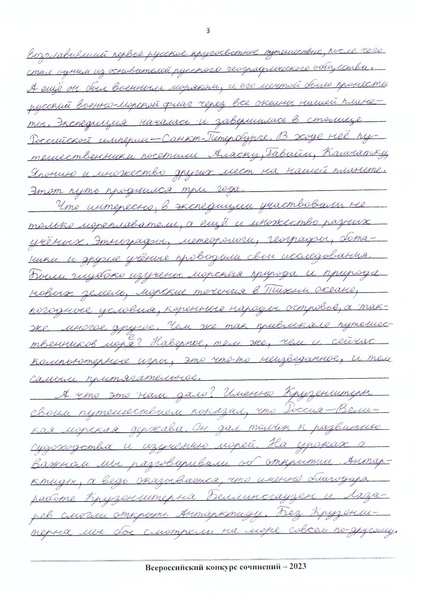 3
возглавивший первое русское кругосветное путешествие, после чего
стал одним из основателей русского географического общества.
А ещё он был военным моряком, и его мечтой было пронести
русский военно-морской флаг через все океаны нашей плане-
ты. Экспедиция началась и завершилась в столице
Российской империи — Санкт-Петербурге. В ходе неё пу-
тешественники посетили Аляску, Гавайи, Камчатку,
Японию и множество других мест на нашей планете.
Этот путь продлился три года.
Что интересно, в экспедиции участвовали не
только мореплаватели, а ещё и множество разных
учёных. Этнографы, метеорологи, географы, бота-
ники и другие учёные проводили свои исследования.
Были глубоко изучены морская природа и природа
новых земель, морские течения в Тихом океане,
погодные условия, коренные народы островов, а так-
же многое другое. Чем же так привлекало путешес-
твенников море? Наверное, тем же, чем и сейчас
компьютерные игры, это что-то неизведанное, и тем
самым притягательное.
А что это нам дало? Именно Крузенштерн
своим путешествием показал, что Россия — Вели-
кая морская держава. Он дал толчок к развитию
судоходства и изучению морей. На уроках о
важном мы разговаривали об открытии Антар-
ктиды, а ведь оказывается, что именно благодаря
работе Крузенштерна Беллинсгаузен и Лаза-
рев смогли открыть Антарктиду. Без Крузенш-
терна мы бы смотрели на море совсем по-другому.
Всероссийский конкурс сочинений – 2023